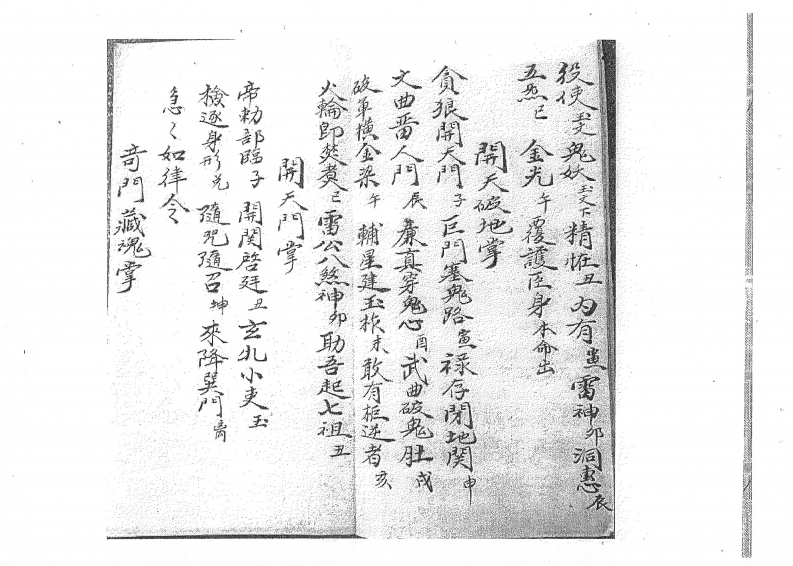 役使玉文鬼妖玉文下精怪丑内有寅雷神卯洞慧辰
五炁巳　金光午覆護匡身本命出
開天破地掌
貪狼開天門子巨門塞鬼路寅禄存閉地関申
文曲番人門辰廉真穿鬼心酉武曲破鬼肚戌
破軍横金梁午輔星建玉柞未敢有拒逆者亥
火輪即焚煑巳雷公八煞神卯助吾起七祖丑
開天門掌
帝勅部臨子開関啓廷丑玄北小吏玉
檢逐身形兑隨咒隨召坤來降巽門
急〻如律令
竒門藏魂掌